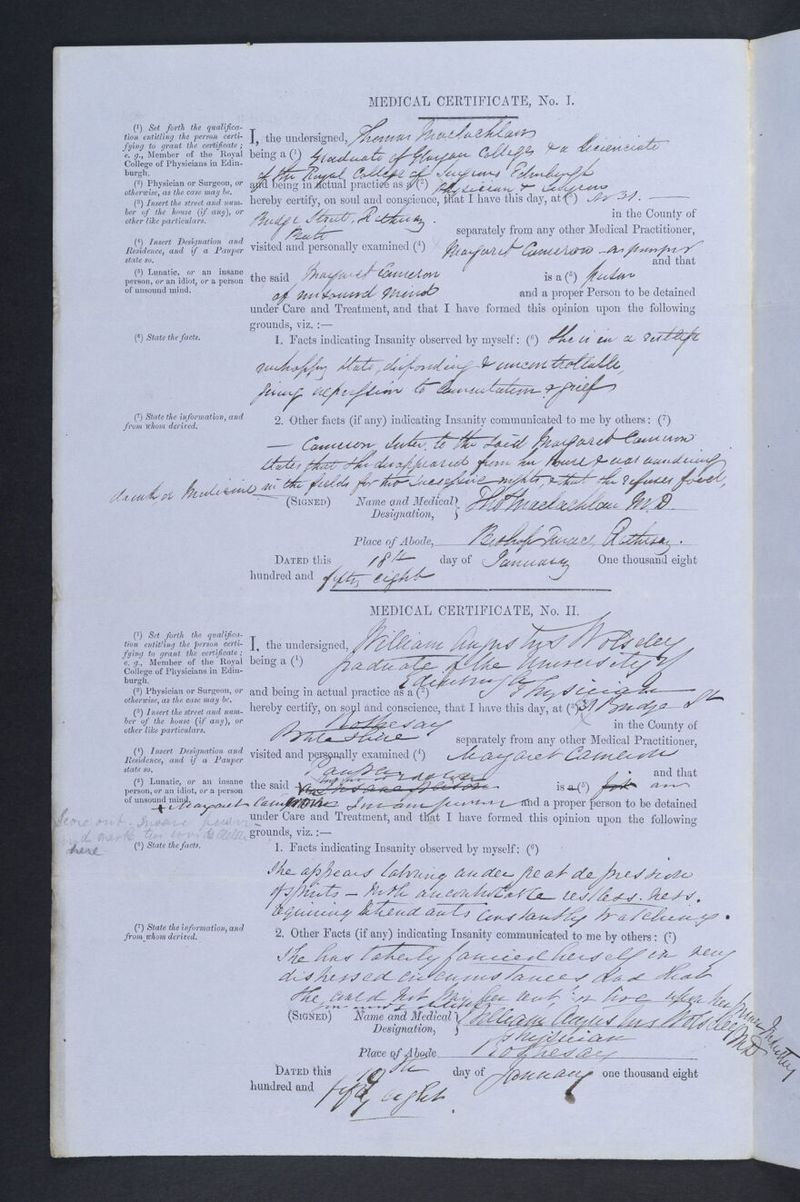 MEDICAL CERTIFICATE, No. I.
(1) Set forth the qualifica-
tion entitling the person certi-
fying to grant the certificate;
e. g., Member of the Royal
College of Physicians in Edin-
burgh.
(2) Physician or Surgeon, or
otherwise, as the case may be.
(3) Insert the street and num-
ber of the house (if any), or
other like particulars.
(4) Insert Designation and
Residence, and if a Pauper
state so.
(5) Lunatic, or an insane
person, or an idiot, or a person
of unsound mind.
(6) State the facts.
(7) State the information, and
from whom derived.
I, the undersigned, Thomas Maclachlan
being a (1) Graduate of Glasgow College & a Licenciate
of the Royal College of Surgeons Edinburgh
and being in actual practice as a (2) Physician & Surgeon
hereby certify, on soul and conscience, that I have this day, at (3) No 31.
Bridge Street, Rothesay in the County of
Bute separately from any other Medical Practitioner,
visited and personally examined (4) Margaret Cameron a pauper
and that
the said Margaret Cameron is a (5) person
of unsound mind and a proper Person to be detained
under Care and Treatment, and that I have formed this opinion upon the following
grounds, viz. :—
1. Facts indicating Insanity observed by myself: (6) She is in a restless
unhappy state, desponding & uncontrollable,
giving expression to lamentation & grief
2. Other facts (if any) indicating Insanity communicated to me by others: (7)
— Cameron Sister to the said Margaret Cameron
States that she disappeared from her house & was wandering
in the fields for two successive nights, & that she refuses food,
drink or Medicine
(SIGNED) Name and Medical Designation, Tho Maclachlan M.D.
Place of Abode, Bishop Terrace, Rothesay.
DATED this 18th day of January One thousand eight
hundred and fifty eight
MEDICAL CERTIFICATE, No. II.
(1) Set forth the qualifica-
tion entitling the person certi-
fying to grant the certificate;
e. g., Member of the Royal
College of Physicians in Edin-
burgh.
(2) Physician or Surgeon, or
otherwise, as the case may be.
(3) Insert the street and num-
ber of the house (if any), or
other like particulars.
(4) Insert Designation and
Residence, and if a Pauper
state so.
(5) Lunatic, or an insane
person, or an idiot, or a person
of unsound mind.
(6) State the facts.
(7) State the information, and
from whom derived.
I, the undersigned, William Angus Wolseley
being a (1) Graduate of the University of
Edinburgh
and being in actual practice as a (2) Physician
hereby certify, on soul and conscience, that I have this day, at (3) 31 Bridge St
Rothesay in the County of
Bute Shire separately from any other Medical Practitioner,
visited and personally examined (4) Margaret Cameron
Pauper and that
the said is a (5) an
Margaret Cameron Insane person and a proper person to be detained
under Care and Treatment, and that I have formed this opinion upon the following
grounds, viz. :—
here
1. Facts indicating Insanity observed by myself: (6)
She appears labouring under great depression
of spirits — with uncontrolable restless-ness.
requiring attendants constantly watching.
2. Other Facts (if any) indicating Insanity communicated to me by others: (7)
She has latterly fancied herself in very
distressed circumstances and that
She could not
(SIGNED) Name and Medical Designation, William Angus Wolseley MD
Physician
Place of Abode Rothesay
DATED this 19th day of January one thousand eight
hundred and fifty eight